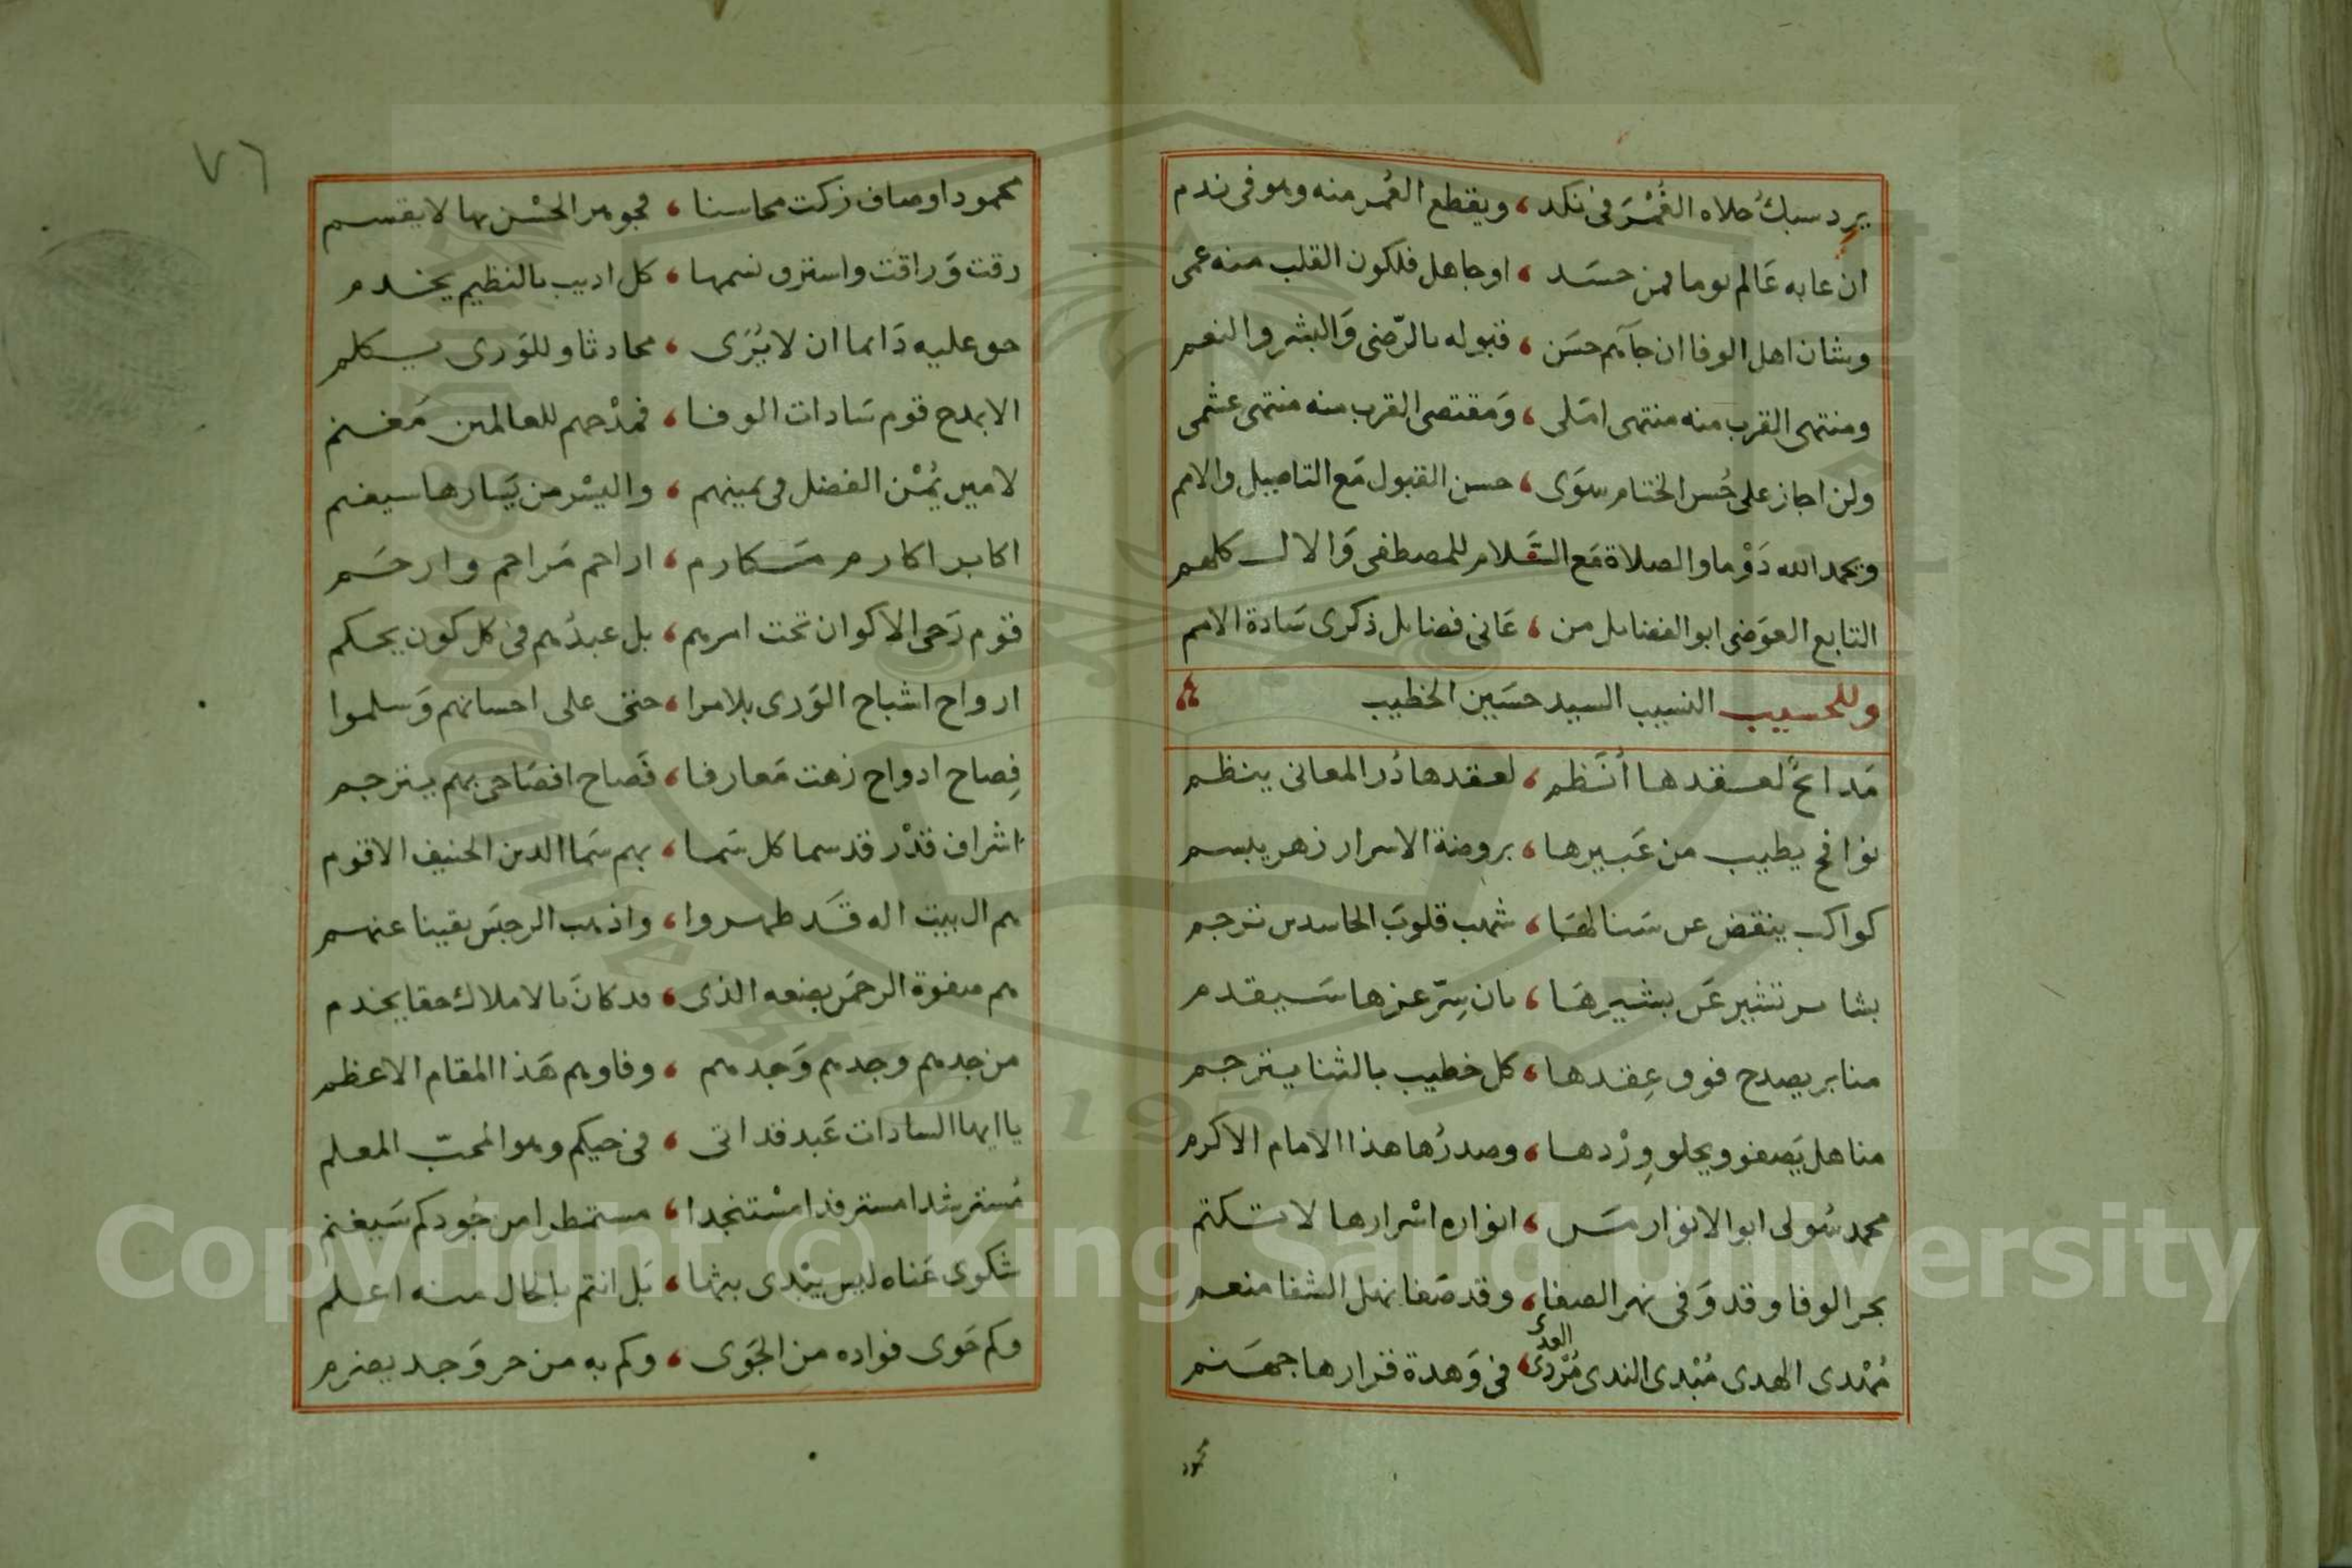 يرد سبك حلاه الغُمْرَ في نكد ، ويقطع العُمر منه وهو في ندم
ان عابه عَالم يوما فمن حسَد ، او جاهل فلكون القلب منه عمى
وشان اهل الوفا ان جآءهم حسَن ، قبوله بالرّضى وَالبشر والنعم
ومنتهى القرب منه منتهى امَلى ، وَمقتضى القرب منه منتهى عشمى
ولن اجاز على حُسن الختام سِوَى ، حسن القبول مَع التاصيل والامم
وبحمد الله دَوْما والصلاة مَع السَّلام للمصطفى وَالال كلهم
التابع العوَضى ابو الفضايل من ، عَانى فضايل ذكرى سَادة الامم
وللحسيب النسيب السيد حسَين الخطيب
مَدائحٌ لعقدها أنَظم ، لعقدها دُر المعانى ينظم
نوافح يطيب من عَبيرها ، بروضة الاسرار زهر يبسم
كواكب ينقض عن سَنا لهَا ، شهب قلوبَ الحاسدين ترجم
بشاير تشير عَن بشيرهَا ، بان سِرّ عزها سَيقدم
منابر يصدح فوق عِقدها ، كل خطيب بالثنا يترجم
مناهل يَصفو ويحلو وِرْدها ، وصدرُها هذا الامام الاكرم
محمد سُولى ابو الانوار مَن ، انواره اسْرارها لا تكتم
بحر الوفا وقد وَفى نهر الصفا ، وقد صَفا نهل الشفا منعم
مُهْدى الهدى مُبْدى الندى مُرْدى العدى ، فى وَهدة قرارها جهَنم
محمود
٧٦
محمود اوصاف زكت محاسنا ، فجوهر الحُسْن بها لا يقسم
رقت وَراقت واسترق نسمها ، كل اديب بالنظيم يخدم
حق عليه دَايما ان لا يُرَى ، محادثا وللوَرى يكلم
الا بمدح قوم سَادات الوفا ، فمدْحهم للعالمين مَغنم
لا مير يُمْن الفضل فى يمينهم ، واليسْر من يَسارها سيفهم
اكابر اكارم مَكارم ، اراحم مَراحم وارحَم
قوم رَحى الاكوان تحت امرهم ، بل عبدُهم فى كل كون يحكم
ارواح اشباح الوَرى بلا مرا ، حتى على احسانهم وَسلموا
فِصاح ادواح زهت مَعارفا ، فَصاح افصَاحى بهم يترجم
اشراف قدْر قد سما كل سَما ، بهم سَما الدين الحنيف الاقوم
هم ال بيت اله قَد طهروا ، واذهب الرجسَ يقينا عنهم
هم صفوة الرحمَن بضعه الذى ، قد كانَ بالاملاك حقا يخدم
من جدهم وجدهم وَجدهم ، وفاوهم هَذا المقام الاعظم
يا ايها السادات عَبد قد اتى ، فى حيكم وهو المحبّ المعلم
مُسترشدا مسترفدا مسْتنجدا ، مستمطرا من جُودكم سَيغنم
شكوى عَناه ليس يبْدى بثها ، بَل انتم بالحال منه اعلم
وكم حَوى فواده من الجَوى ، وكم به من حر وَجد يضرم
Copyright © King Saud University
1957